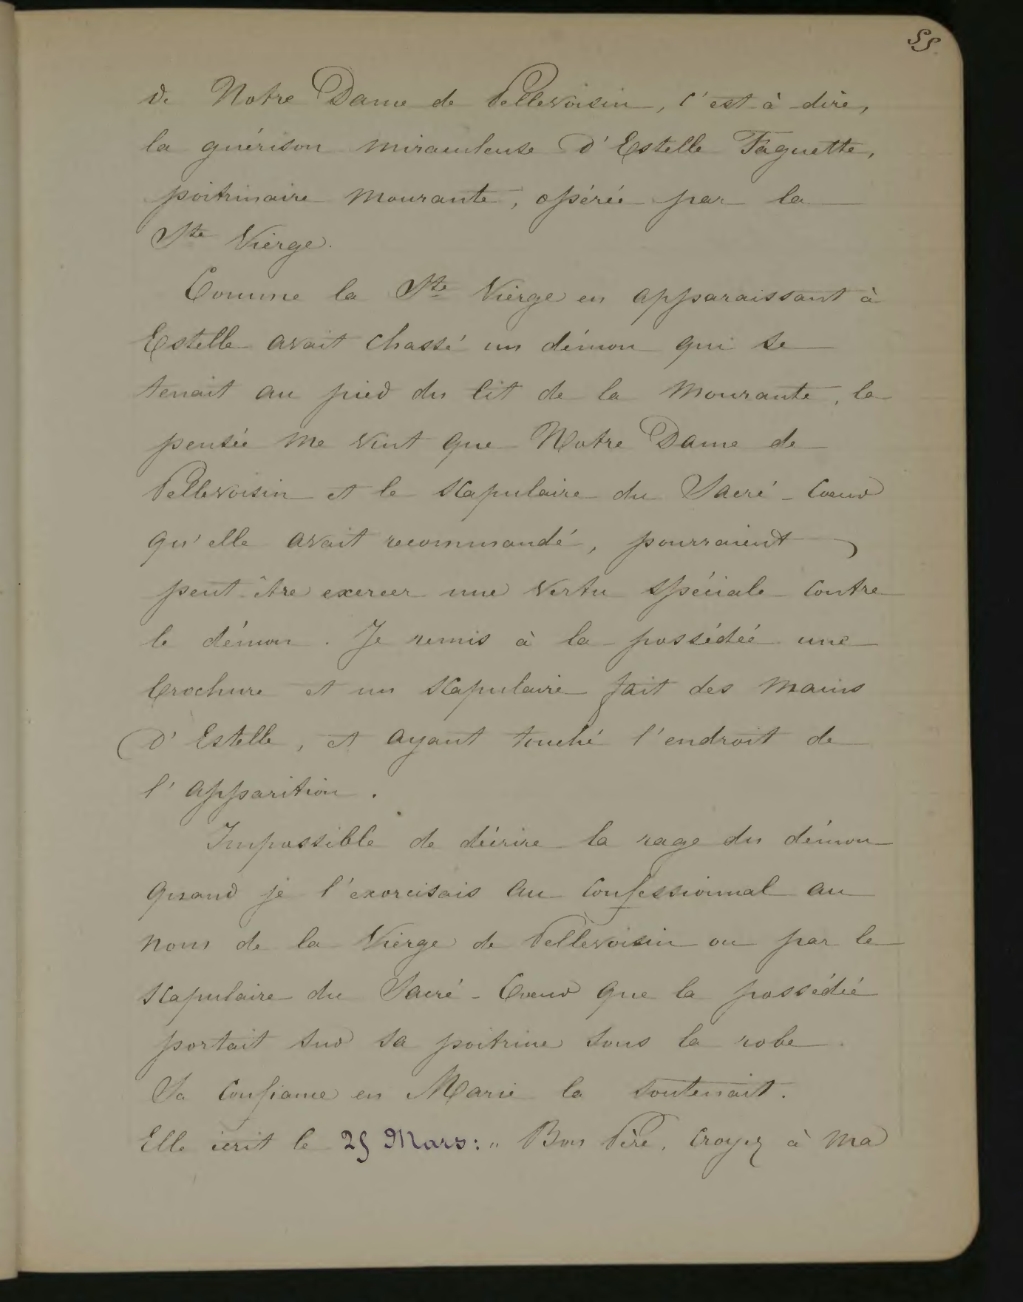 55.
de Notre Dame de Pellevoisin, c'est à dire,
la guérison miraculeuse d'Estelle Faguette,
poitrinaire mourante, opérée par la
Ste Vierge.
Comme la Ste Vierge en apparaissant à
Estelle avait chassé un démon qui se
tenait au pied du lit de la mourante, la
pensée me vint que Notre Dame de
Pellevoisin et le scapulaire du Sacré-Coeur
qu'elle avait recommandé, pourraient
peut-être exercer une vertu spéciale contre
le démon. Je remis à la possédée une
brochure et un scapulaire fait des mains
d'Estelle, et ayant touché l'endroit de
l'apparition.
Impossible de décrire la rage du démon
quand je l'exorcisais au confessionnal au
nom de la Vierge de Pellevoisin ou par le
scapulaire du Sacré-Coeur que la possédée
portait sur sa poitrine sous la robe.
Sa confiance en Marie la soutenait.
Elle écrit le 25 Mars: " Bon Père, croyez à ma